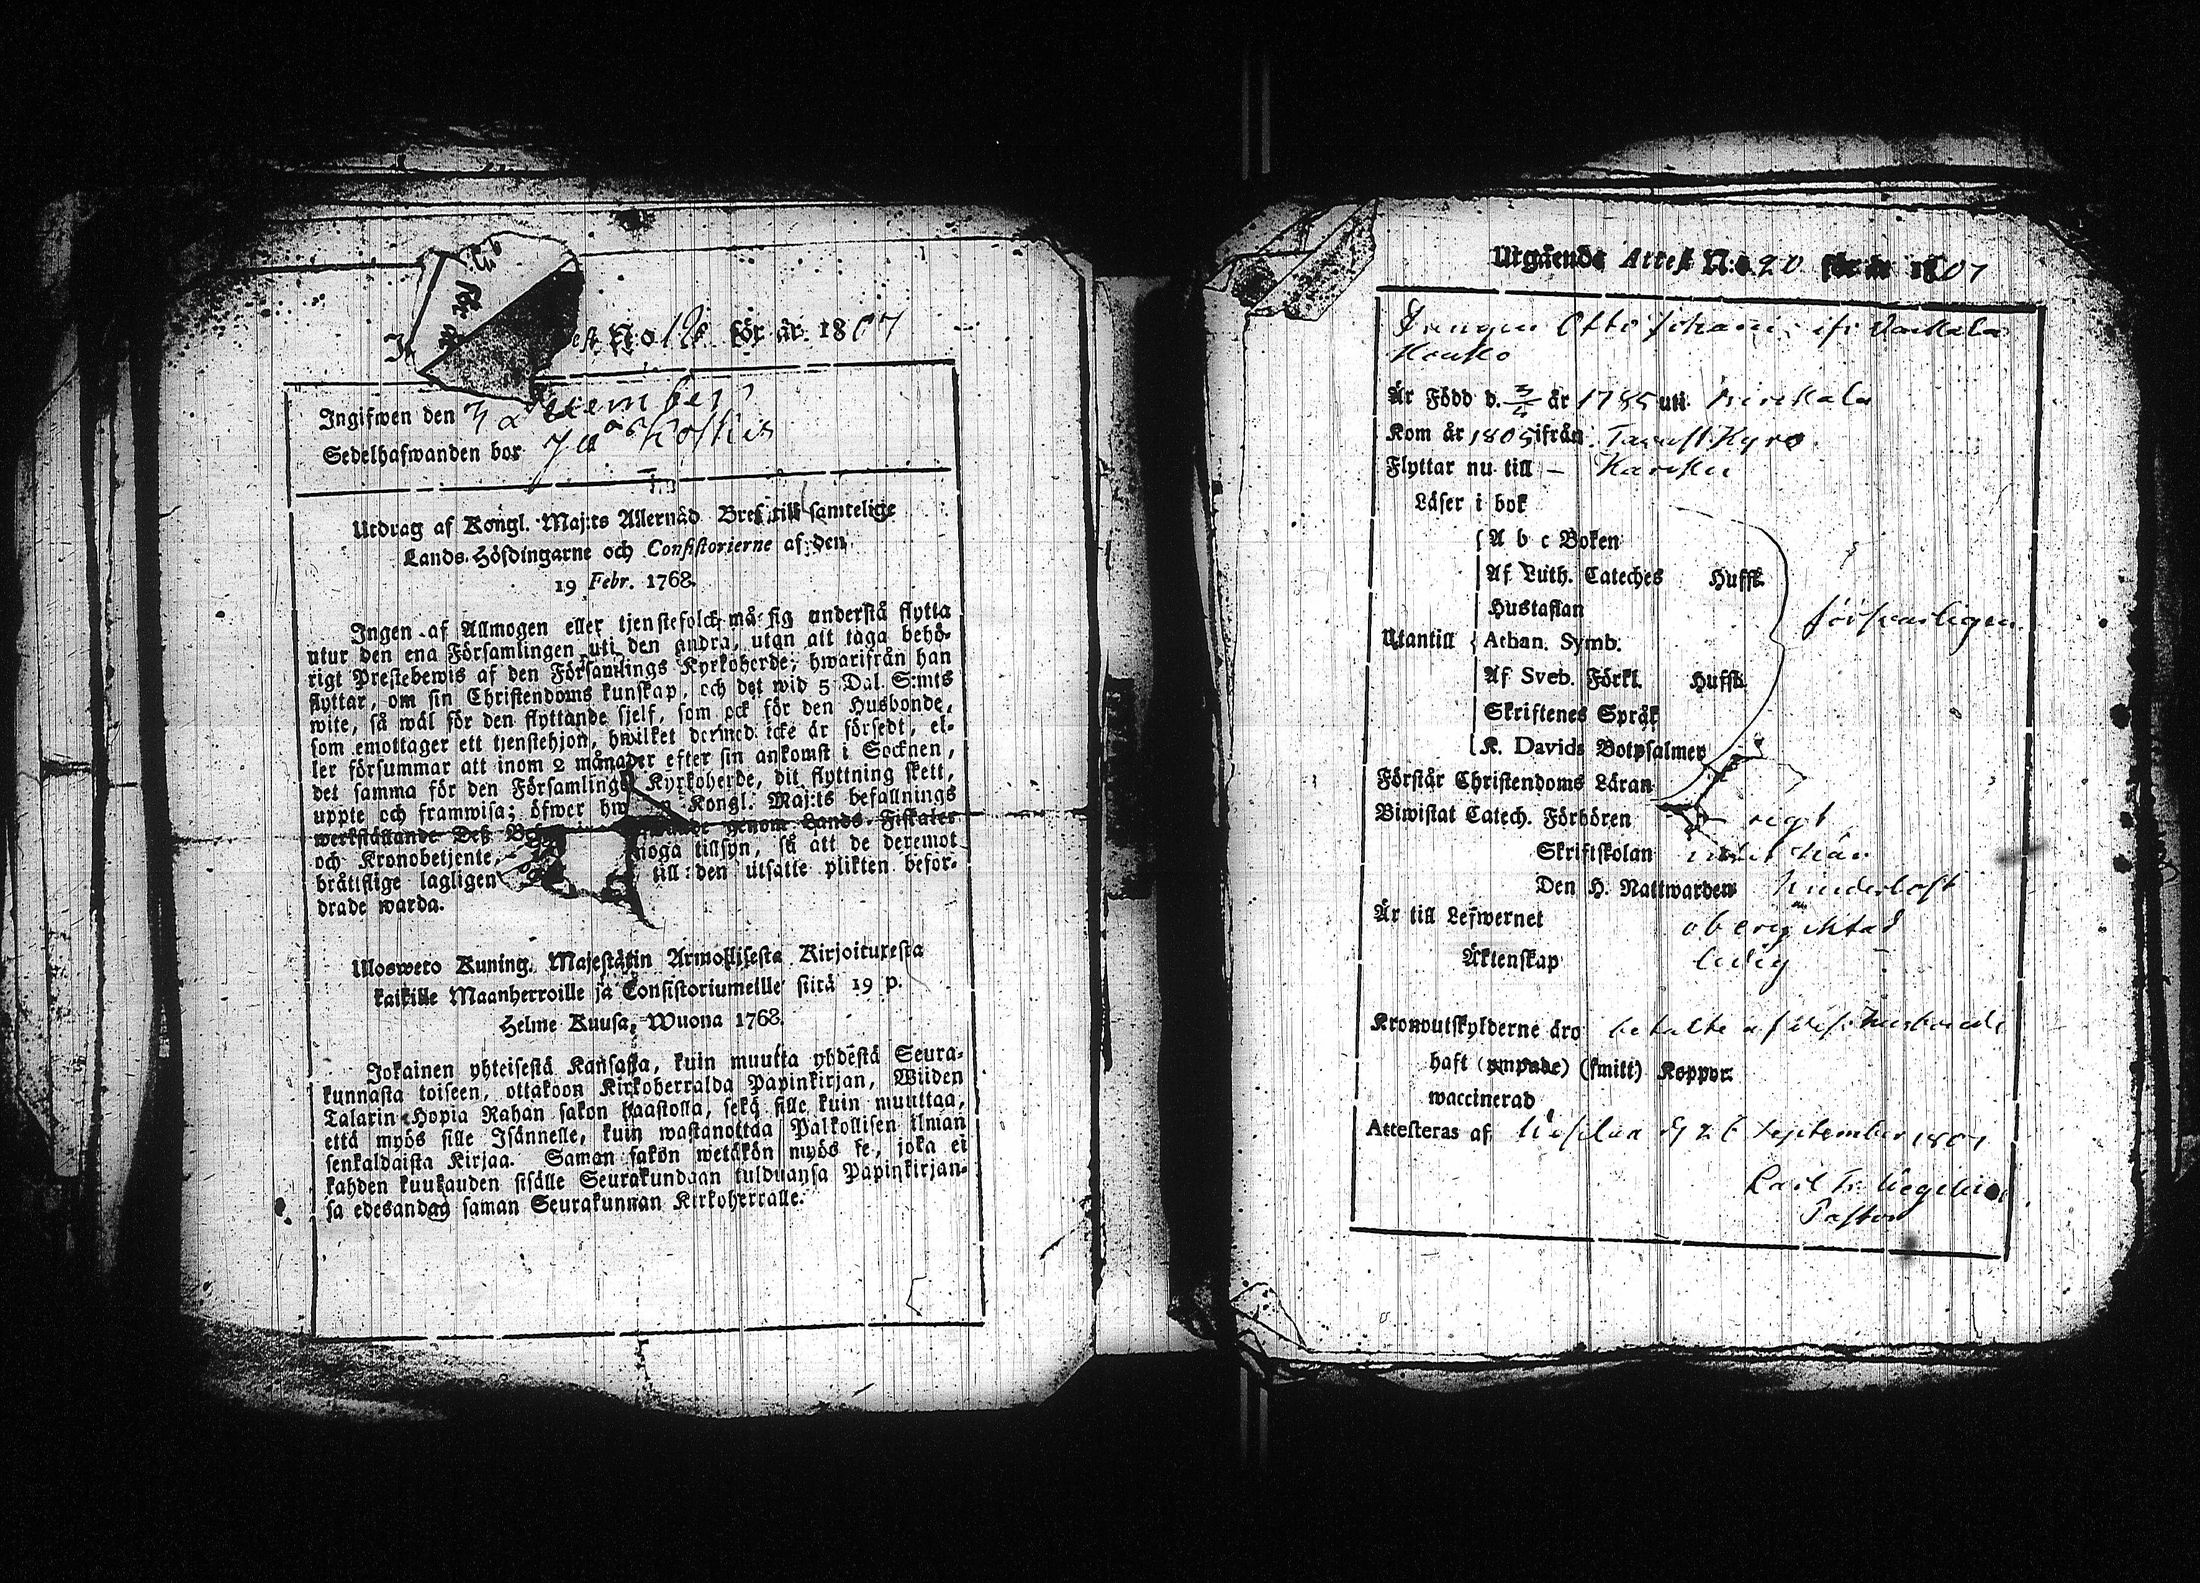 No 196 för år 1807
Ingifwen den
Sedelhafwanden bor
Utdrag af Kongl. Maj:ts Allernåd Bref till samtelige
Lands-Höfdingarne och Consistorierne af den
19 Febr. 1768.
Ingen af Allmogen eller tjenstefolck må sig understå flytta
utur den ena Församlingen uti den andra, utan att taga behö-
rigt Prestebewis af den Församlings Kyrkoherde, hwarifrån han
flyttar, om sin Christendoms kunskap, och det wid 5 Dal. S:mts
wite, så wäl för den flyttande sjelf, som ock för den Husbonde,
som emottager ett tjenstehjon, hwilket dermed icke är försedt, el-
ler försummar att inom 2 månader efter sin ankomst i Socknen,
det samma för den Församlings Kyrkoherde, dit flyttning skett,
uppte och framwisa; öfwer Kongl. Maj:ts befallnings
werkställande Deß genom Lands-Fiskaler
och Kronobetjente, noga tillsyn, så att de deremot
bråttslige lagligen till den utsatte plikten befor-
drade warda.
Ulosweto Kuning. Majestätin Armollisesta Kirjoituxesta
kaikille Maanherroille ja Consistoriumeille siitä 19 p.
Helme Kuusa, Wuona 1768.
Jokainen yhteisestä Kansasta, kuin muutta yhdestä Seura-
kunnasta toiseen, ottakoon Kirkoherralda Papinkirjan, Wiiden
Talarin Hopia Rahan sakon haastolla, sekä sille kuin muuttaa,
että myös sille Isännelle, kuin wastanottaa Palkollisen ilman
senkaldaista Kirjaa. Saman sakon wetäkön myös se, joka ei
kahden kuukauden sisälle Seurakundaan tulduansa Papinkirjan-
sa edesandaa saman Seurakunnan Kirkoherralle.
Utgående Attest N:o 20 för år 1807
Drengen Otto Johan
Är Född d. 3/4 år 1785 uti
Kom år 1805 ifrån Tavastkyro
Flyttar nu till – Karcku
Läser i bok
A b c Boken
Af Luth. Cateches Huffst.
Hustaflan
försvarligen
Utantill Athan. Symb.
Af Sveb. Förkl. Huffst.
Skriftenes Språk
K. Davids Botpsalmer
Förstår Christendoms Läran
Biwistat Catech. Förhören
Skriftskolan
Den H. Nattwarden
Är till Lefwernet oberychtad
Äktenskap ledig
Kronoutskylderne äro betalte af
haft (ympade) (smitt) Koppor.
waccinerad
Attesteras af d 26 September 1807
Carl Fr.
Pastor